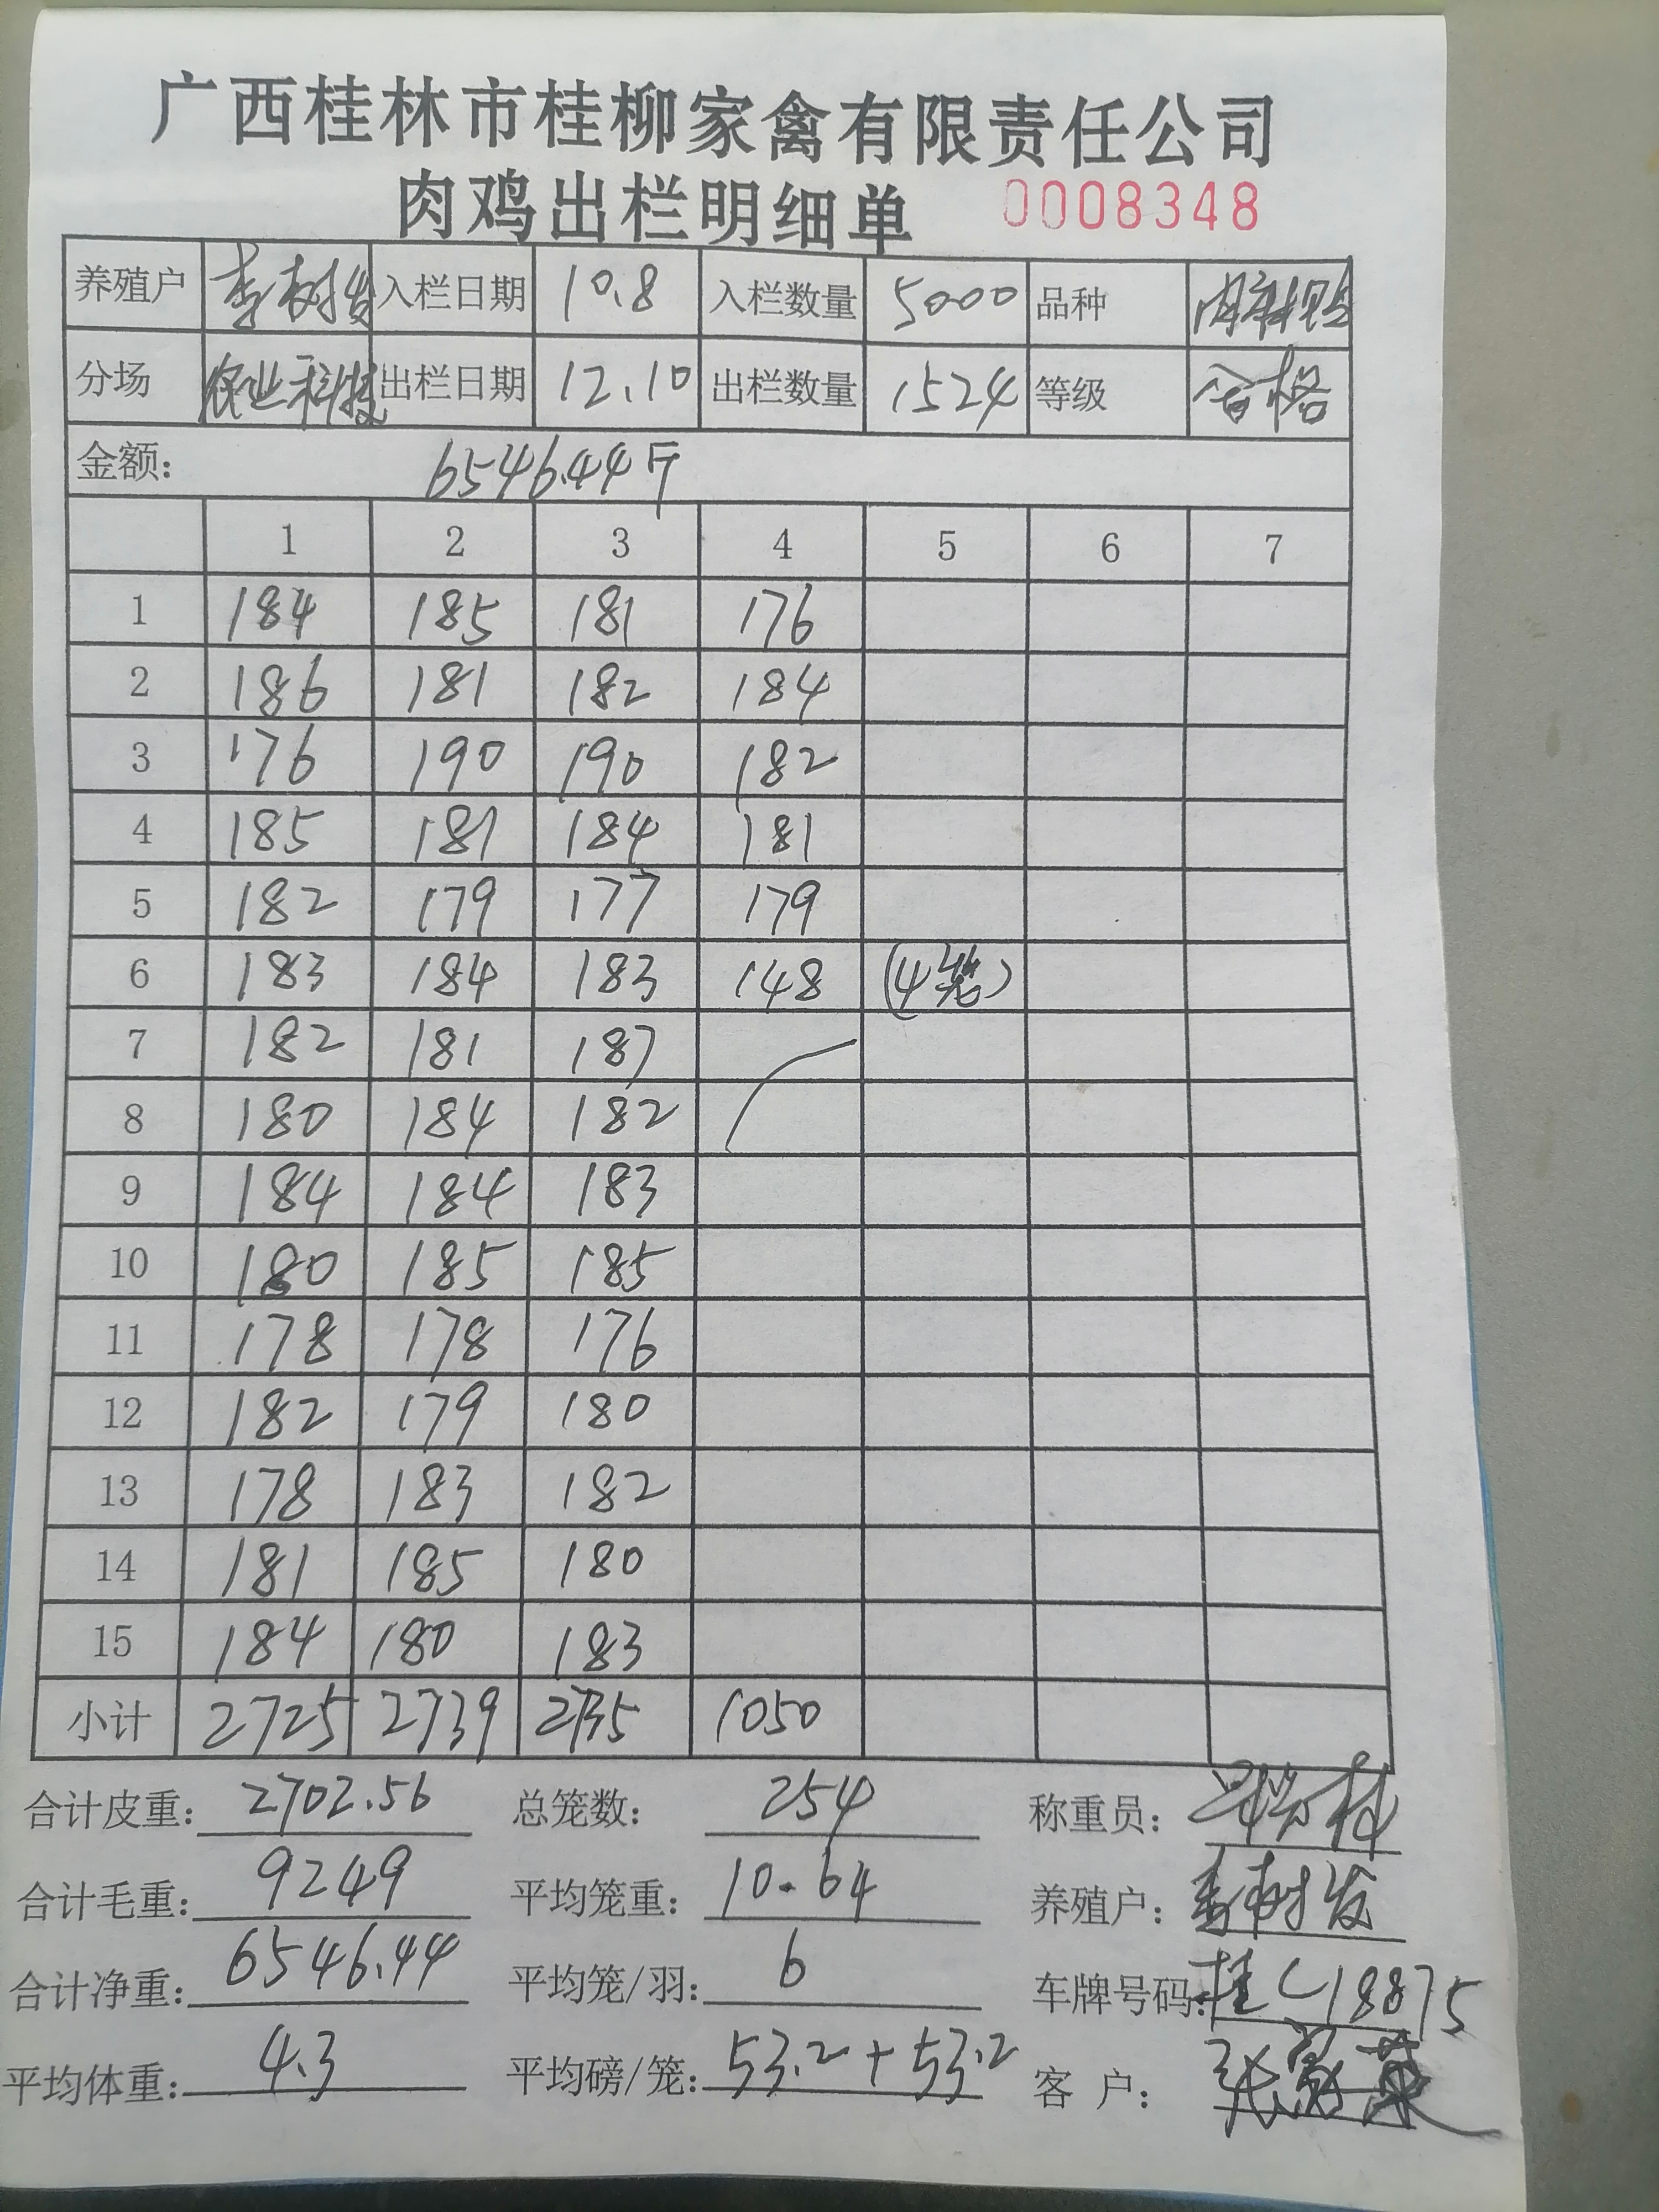 广西桂林市桂柳家禽有限责任公司
肉鸡出栏明细单 0008348
养殖户 李树发 入栏日期 10.8 入栏数量 5000 品种
分场 农业科技 出栏日期 12.10 出栏数量 1524 等级 合格
金额： 6546.44斤
1 2 3 4 5 6 7
1 184 185 181 176
2 186 181 182 184
3 176 190 190 182
4 185 181 184 181
5 182 179 177 179
6 183 184 183 148 (4笼)
7 182 181 187
8 180 184 182
9 184 184 183
10 180 185 185
11 178 178 176
12 182 179 180
13 178 183 182
14 181 185 180
15 184 180 183
小计 2725 2739 2735 1050
合计皮重： 2702.56 总笼数： 254 称重员：
合计毛重： 9249 平均笼重： 10.64 养殖户： 李树发
合计净重： 6546.44 平均笼/羽： 6 车牌号码： 桂C18875
平均体重： 4.3 平均磅/笼： 53.2+53.2 客 户：